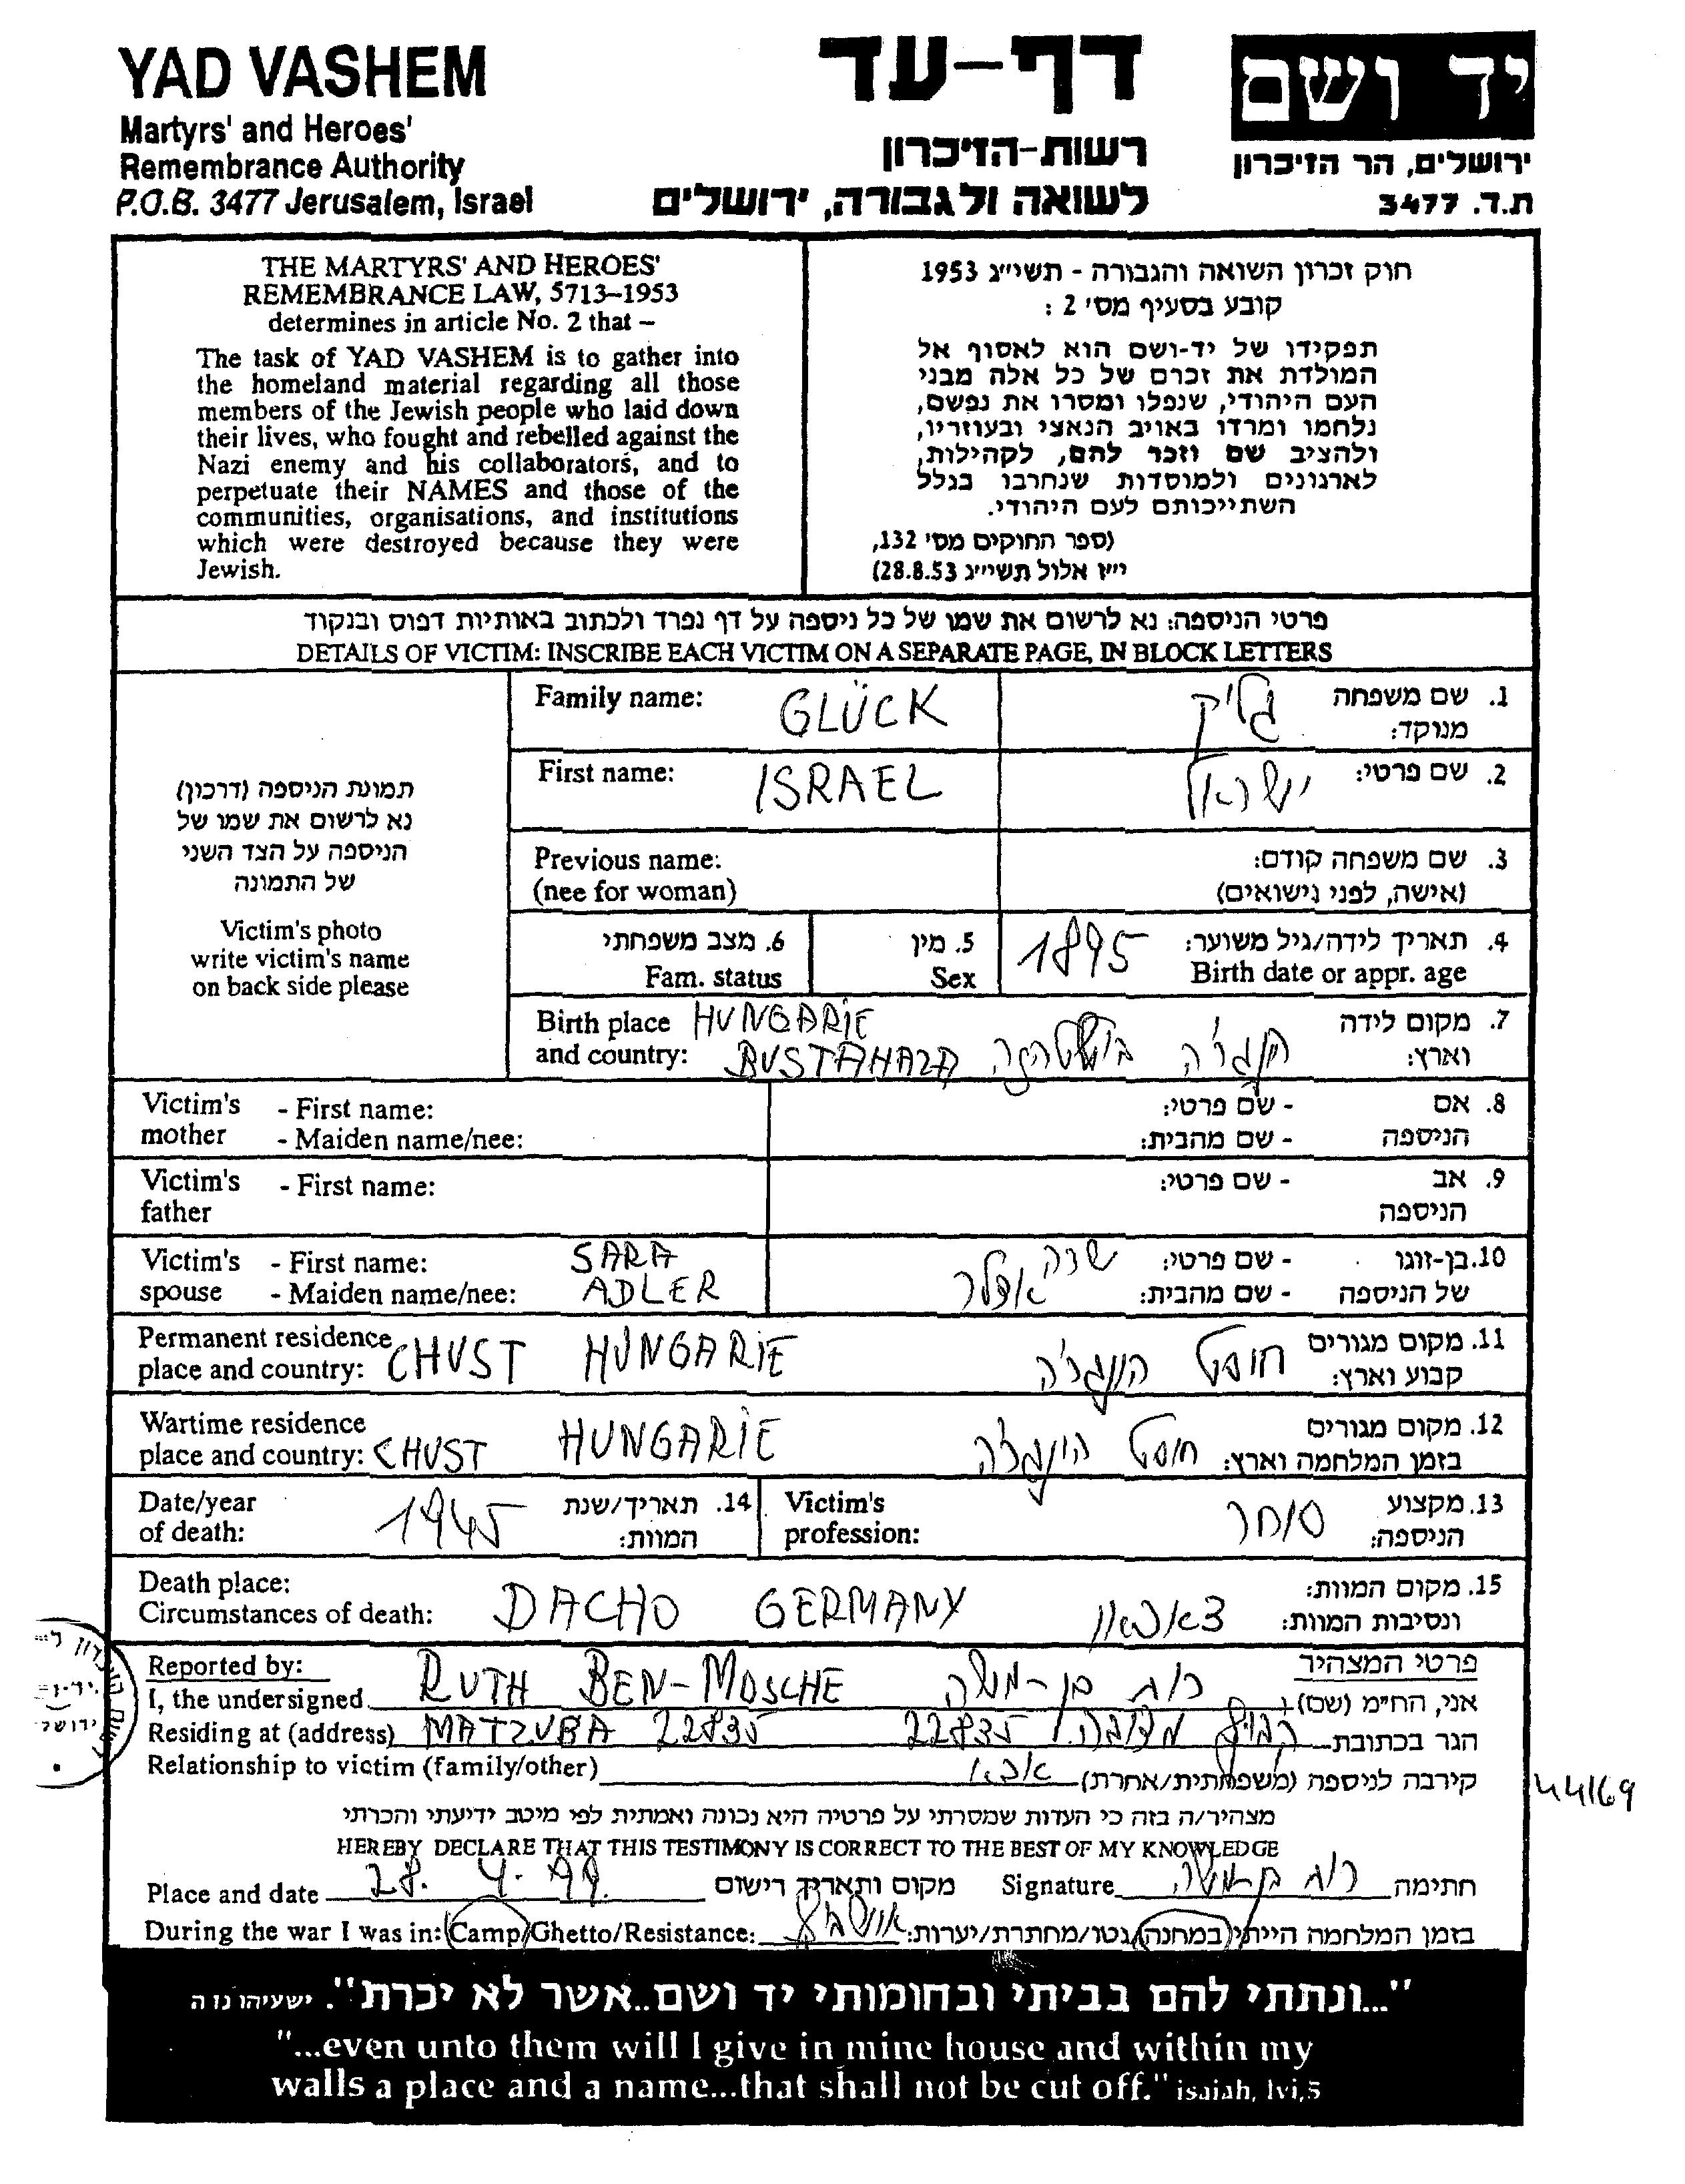 YAD VASHEM
Martyrs' and Heroes'
Remembrance Authority
P.O.B. 3477 Jerusalem, Israel
דף-עד
רשות-הזיכרון
לשואה ולגבורה, ירושלים
יד ושם
ירושלים, הר הזיכרון
ת.ד. 3477
THE MARTYRS' AND HEROES'
REMEMBRANCE LAW, 5713–1953
determines in article No. 2 that –
The task of YAD VASHEM is to gather into
the homeland material regarding all those
members of the Jewish people who laid down
their lives, who fought and rebelled against the
Nazi enemy and his collaborators, and to
perpetuate their NAMES and those of the
communities, organisations, and institutions
which were destroyed because they were
Jewish.
חוק זכרון השואה והגבורה - תשי״ג 1953
קובע בסעיף מס' 2 :
תפקידו של יד-ושם הוא לאסוף אל
המולדת את זכרם של כל אלה מבני
העם היהודי, שנפלו ומסרו את נפשם,
נלחמו ומרדו באויב הנאצי ובעוזריו,
ולהציב שם וזכר להם, לקהילות,
לארגונים ולמוסדות שנחרבו בגלל
השתייכותם לעם היהודי.
(ספר החוקים מס' 132,
י״ז אלול תשי״ג 28.8.53)
פרטי הניספה: נא לרשום את שמו של כל ניספה על דף נפרד ולכתוב באותיות דפוס ובנקוד
DETAILS OF VICTIM: INSCRIBE EACH VICTIM ON A SEPARATE PAGE, IN BLOCK LETTERS
תמונת הניספה (דרכון)
נא לרשום את שמו של
הניספה על הצד השני
של התמונה
Victim's photo
write victim's name
on back side please
Family name: GLÜCK גליק 1. שם משפחה
מנוקד:
First name: ISRAEL ישראל 2. שם פרטי:
Previous name: 3. שם משפחה קודם:
(nee for woman) (אישה, לפני נישואים)
6. מצב משפחתי 5. מין 1895 4. תאריך לידה/גיל משוער:
Fam. status Sex Birth date or appr. age
Birth place HUNGARIE 7. מקום לידה
and country: BUSTAHAZA בושטהזה הונגריה וארץ:
Victim's - First name: - שם פרטי: 8. אם
mother - Maiden name/nee: - שם מהבית: הניספה
Victim's - First name: - שם פרטי: 9. אב
father הניספה
Victim's - First name: SARA שרה - שם פרטי: 10. בן-זוגו
spouse - Maiden name/nee: ADLER אדלר - שם מהבית: של הניספה
Permanent residence 11. מקום מגורים
place and country: CHUST HUNGARIE חוסט הונגריה קבוע וארץ:
Wartime residence 12. מקום מגורים
place and country: CHUST HUNGARIE חוסט הונגריה בזמן המלחמה וארץ:
Date/year 1945 14. תאריך/שנת Victim's סוחר 13. מקצוע
of death: המוות: profession: הניספה:
Death place: 15. מקום המוות:
Circumstances of death: DACHO GERMANY דאכאו ונסיבות המוות:
Reported by: פרטי המצהיר
I, the undersigned RUTH BEN-MOSCHE רות בן-משה אני, הח״מ (שם)
Residing at (address) MATZUBA 22835 קבוץ מצובה 22835 הגר בכתובת
Relationship to victim (family/other) אבא קירבה לניספה (משפחתית/אחרת)
מצהיר/ה בזה כי העדות שמסרתי על פרטיה היא נכונה ואמתית לפי מיטב ידיעתי והכרתי
HEREBY DECLARE THAT THIS TESTIMONY IS CORRECT TO THE BEST OF MY KNOWLEDGE
Place and date 28. 4. 99. מקום ותאריך רישום Signature רות בן-משה חתימה
During the war I was in: Camp/Ghetto/Resistance: אושוויץ בזמן המלחמה הייתי במחנה/גטו/מחתרת/יערות:
44169
"...ונתתי להם בביתי ובחומותי יד ושם..אשר לא יכרת". ישעיהו נו ה
"...even unto them will I give in mine house and within my
walls a place and a name...that shall not be cut off." isaiah, lvi,5